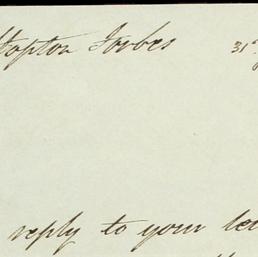 Hopton Forbes 31st
reply to your let